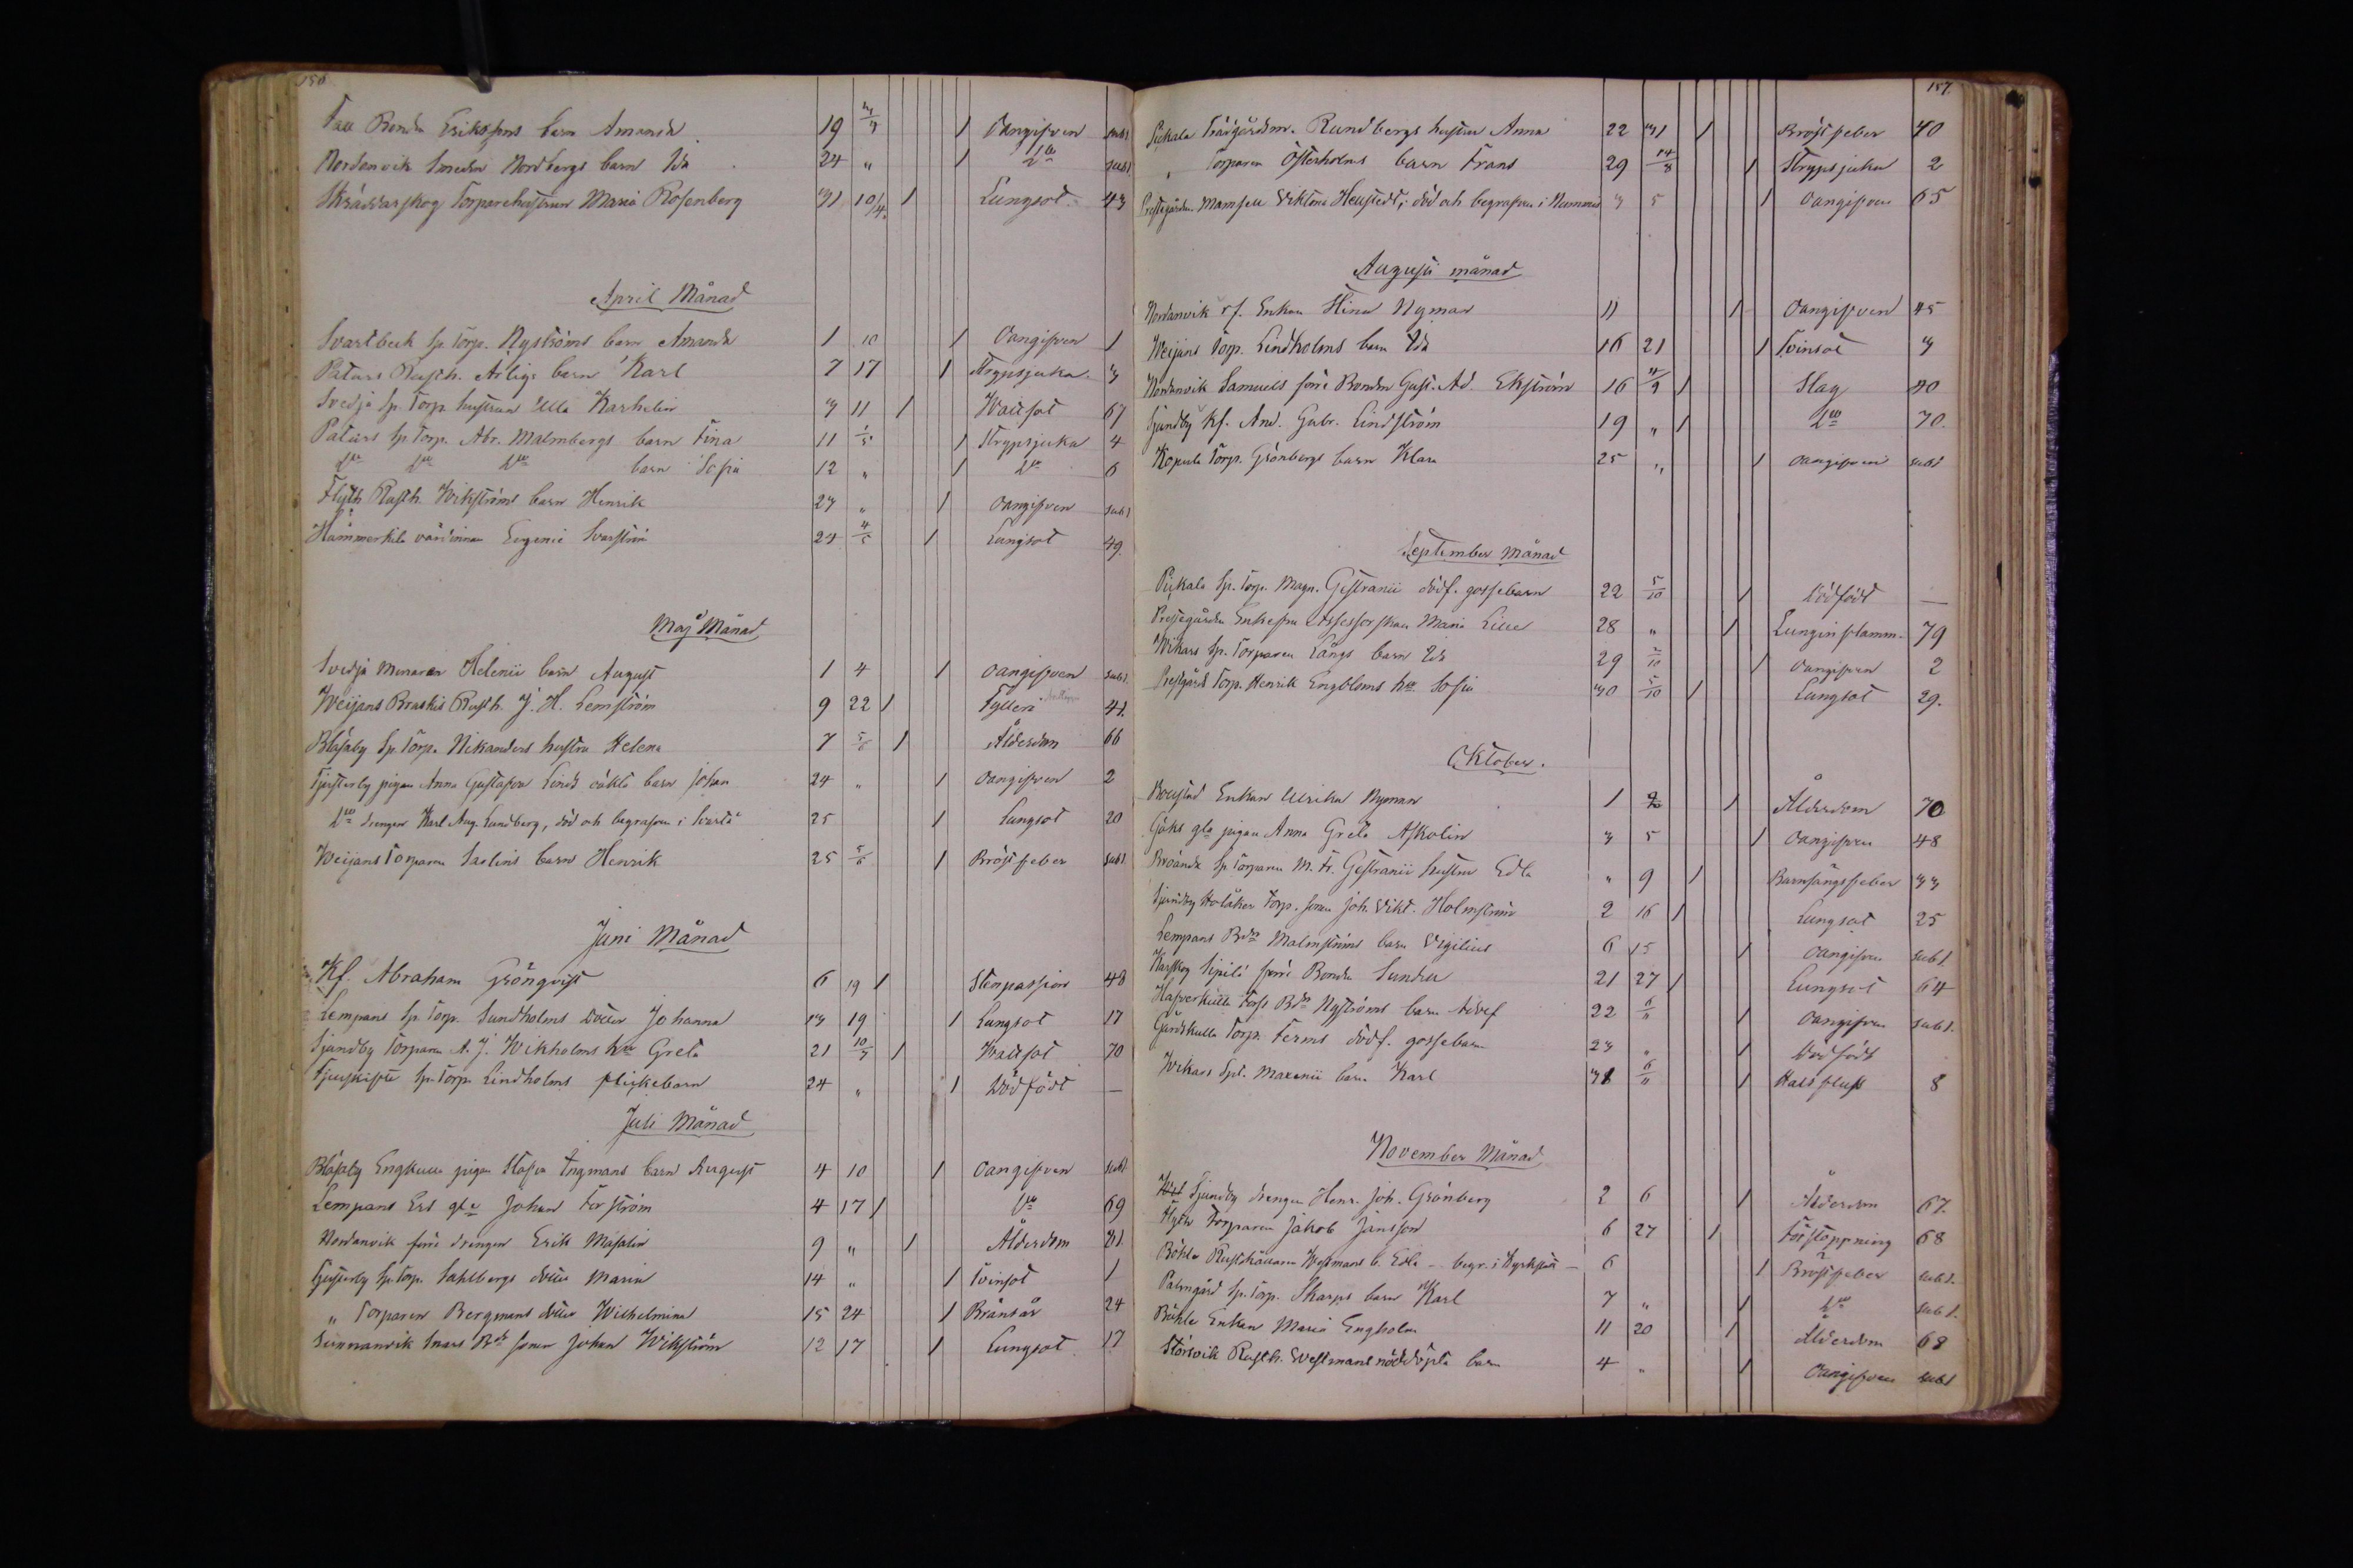 150
Bonden Erikssons barn Amanda 19 / Oangifven sub1
Nordanvik Smeden Nordbergs barn Ida 24 " / Dto sub1
Skräddarskog Torparehustrun Maria Rosenberg 31 10/4 / Lungsot 43
April Månad
Svartbeck Sp. Torp. Nyströms barn Amanda 1 10 / Oangifven 1
Paturs Rusth. Arligs barn Karl 7 17 / Strypsjuka 3
Svedja Sp. Torp. hustrun Ulla Karhelin 3 11 / Wattsot 67
Paturs Sp. Torp. Abr. Malmbergs barn Fina 11 1/5 / Strypsjuka 4
Dto Dto Dto barn Sofia 12 " / Dto 6
Flyth Rusth. Wikströms barn Henrik 23 " / Oangifven sub1
Hämmerkila värdinnan Eugenie Svaström 24 4/5 / Lungsot 49.
Maj Månad
Svedja Muraren Helenii barn August 1 4 / Oangifven sub1.
Weijans Braskis Rusth. J. H. Lemström 9 22 / Fylleri 41.
Blåsaby Sp. Torp. Nikanders hustru Helena 7 5/6 / Ålderdom 66
Tjusterby pigan Anna Gustafva Linds oäkta barn Johan 24 " / Oangifven 2
Dto drengen Karl Aug. Lundberg, död och begrafven i Svartå 25 / Lungsot 20
Weijans Torparen Saelins barn Henrik 25 5/6 / Bröstfeber sub1
Juni Månad
Kf. Abraham Grönqvist 6 19 / Stenpassion 48
Lempans Sp. Torp. Sundholms dotter Johanna 13 19 / Lungsot 17
Sjundby Torparen A. J. Wikholms hu Greta 21 10/7 / Wattsot 70
Sp. Torp. Lindholms flickebarn 24 " / Dödfödt —
Juli Månad
Blåsaby Engkulla pigan Stafva Ingmans barn August 4 10 / Oangifven sub1
Lempans Ers gla Johan Forström 4 17 / Dto 69
Nordanvik förre drengen Erik Masalin 9 " / Ålderdom 81
Tjusterby Sp. Torp. Sahlbergs dotter Maria 14 " / Tvinsot 1
" Torparen Bergmans dotter Wilhelmina 15 24 / Brånsår 24
Sunnanvik Smars Bds sonen Johan Wikström 12 17 / Lungsot 17
157.
Pickala Trädgårdsm. Rundbergs hustru Anna 22 31 / Bröstfeber 40
" Torparen Österholms barn Frans 29 14/8 / Strypsjuka 2
Prestgården Mamsell Viktoria Heustedt, död och begrafven i Nummis 3 5 / Oangifven 65
Augusti månad
Nordanvik rf. Enkan Stina Nyman 11 / Oangifven 45
Weijans Torp. Lindholms barn Ida 16 21 / Tvinsot 3
Nordanvik Samuels förre Bonden Gust. Ad. Ekström 16 4/9 / Slag 40
Sjundby Kf. And. Gabr. Lindström 19 " / Dto 70.
Kopula Torp. Grönbergs barn Klara 25 " / Oangifven sub1
September Månad
Pickala Sp. Torp. Magn. Gestranii dödf. gossebarn 22 5/10 / Dödfödt —
Prestegården Enkefru Assessorskan Maria Lilie 28 " / Lunginflamm. 79
Wikars Sp. Torparen Långs barn Ida 29 2/10 / Oangifven 2
Prestgård Torp. Henrik Engbloms hu Sofia 30 5/10 / Lungsot 29.
Oktober.
Bollstad Enkan Ulrika Nyman 1 / Ålderdom 70
Göks gla pigan Anna Greta Askolin 3 5 / Oangifven 48
Broända Sp. Torparen M. Fr. Gestranii hustru Edla " 9 / Barnsängsfeber 33
Sjundby Holåker Torp. sonen Joh. Vikt. Holmström 2 16 / Lungsot 25
Lempans Bdn Malmströms barn Vigilius 6 15 / Oangifven sub1.
Kärskog Sipilä förre Bonden Sunden 21 27 / Lungsot 64
Hafverkulla Bdn Nyströms barn Adolf 22 6/11 / Oangifven sub1.
Gårdskulla Torp. Ferms dödf. gossebarn 23 " / Dödfödt
Wikars Spl. Maxenii barn Karl 31 6/11 / Halsfluss 8
November Månad
Sjundby drengen Henr. Joh. Grönberg 2 6 / Ålderdom 67.
Flyth Torparen Jakob Jansson 6 27 / Förstoppning 68
Böhle Rusthållaren Westmans b. Edla – begr. i Kyrkslätt – 6 / Bröstfeber sub1.
Palmgård Sp. Torp. Skarps barn Karl 7 " / Dto sub1.
Böhle Enkan Maria Engholm 11 20 / Ålderdom 68
Störsvik Rusth. Westmans nöddöpta barn 4 " / Oangifven sub1